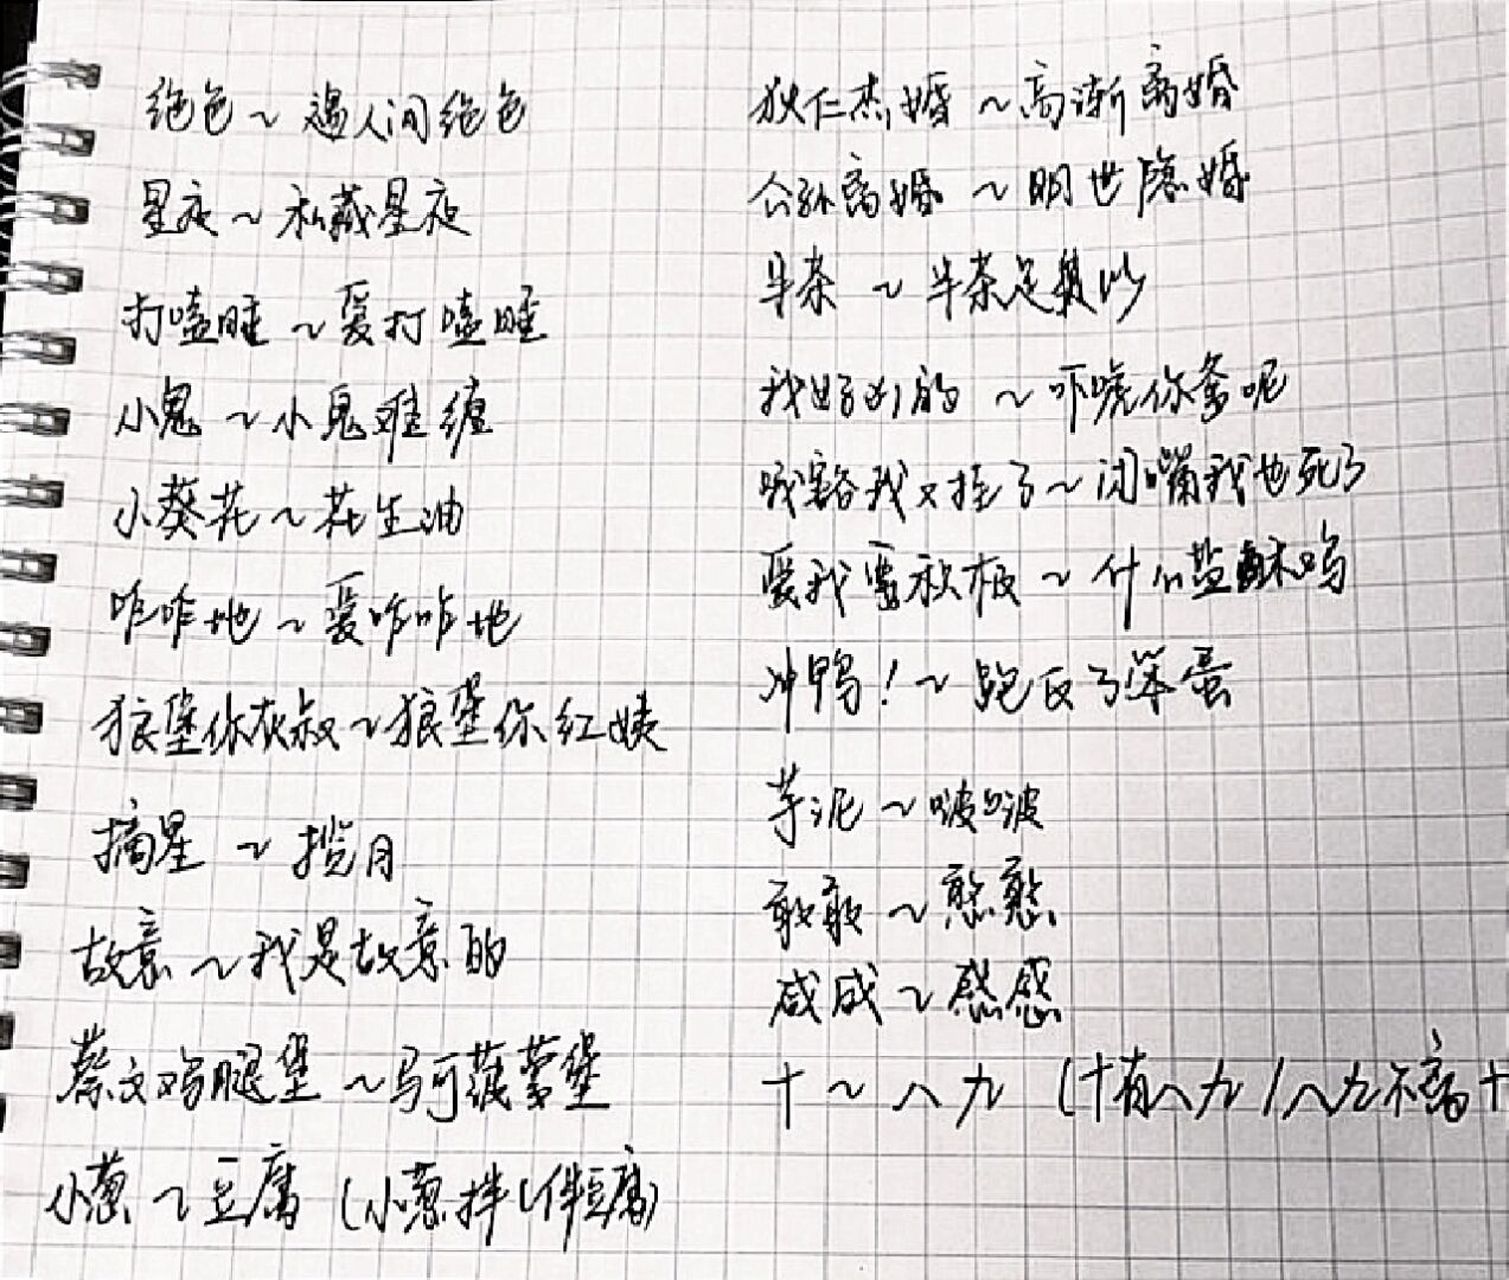 绝色~遇人间绝色
星夜~私藏星夜
打嗑睡~爱打嗑睡
小鬼~小鬼难缠
小葵花~花生油
咋咋地~爱咋咋地
狼堡你灰叔~狼堡你红姨
摘星~揽月
故意~我是故意的
蔡文鸡腿堡~马可菠萝堡
小葱~豆腐(小葱拌豆腐)
狄仁杰婚~高渐离婚
公孙离婚~明世隐婚
半茶~半茶足矣以
我好凶的~吓唬你爹呢
哦豁我又挂了~闭嘴我也死了
爱我要积极~什么盐酥鸡
冲鸭!~跑反了笨蛋
芋泥~啵啵
敢敢~憨憨
咸咸~感感
十~八九(十有八九/八九不离十